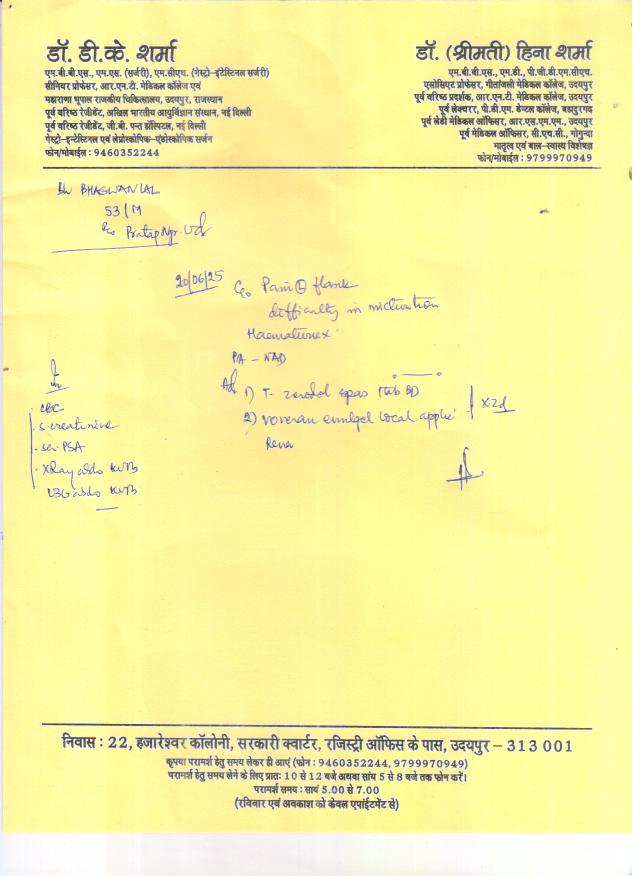 डॉ. डी.के. शर्मा
एम.बी.बी.एस., एम.एस. (सर्जरी), एम.सीएच. (गेस्ट्रो-इंटेस्टिनल सर्जरी)
सीनियर प्रोफेसर, आर.एन.टी. मेडिकल कॉलेज एवं
महाराणा भूपाल राजकीय चिकित्सालय, उदयपुर, राजस्थान
पूर्व वरिष्ठ रेजीडेंट, अखिल भारतीय आयुर्विज्ञान संस्थान, नई दिल्ली
पूर्व वरिष्ठ रेजीडेंट, जी.बी. पन्त हॉस्पिटल, नई दिल्ली
गेस्ट्रो-इन्टेस्टिनल एवं लेप्रोस्कोपिक-एंडोस्कोपिक सर्जन
फोन/मोबाईल : 9460352244
डॉ. (श्रीमती) हिना शर्मा
एम.बी.बी.एस., एम.डी., पी.जी.डी.एम.सीएच.
एसोसिएट प्रोफेसर, गीतांजली मेडिकल कॉलेज, उदयपुर
पूर्व वरिष्ठ प्रदर्शक, आर.एन.टी. मेडिकल कॉलेज, उदयपुर
पूर्व लेक्चरर, पी.डी.एम. डेन्टल कॉलेज, बहादुरगढ़
पूर्व लेडी मेडिकल ऑफिसर, आर.एस.एम.एम., उदयपुर
पूर्व मेडिकल ऑफिसर, सी.एच.सी., गोगुन्दा
मातृत्व एवं बाल-स्वास्थ्य विशेषज्ञ
फोन/मोबाईल : 9799970949
BHAGWAN LAL
53/M
Pratap Ngr. Ud
20/06/25 C/o Pain (L) flank
difficulty in micturition
Haematurea
PA - NAD
Adv 1) T- zerodol spas 1 tab BD
2) voveran emulgel local applic x2d
CBC
S. creatinine
ser. PSA
XRay abdo KUB
USG abdo KUB
निवास : 22, हजारेश्वर कॉलोनी, सरकारी क्वार्टर, रजिस्ट्री ऑफिस के पास, उदयपुर – 313 001
कृपया परामर्श हेतु समय लेकर ही आएं (फोन : 9460352244, 9799970949)
परामर्श हेतु समय लेने के लिए प्रातः 10 से 12 बजे अथवा सांय 5 से 8 बजे तक फोन करें।
परामर्श समय : सायं 5.00 से 7.00
(रविवार एवं अवकाश को केवल एपांईटमेंट से)